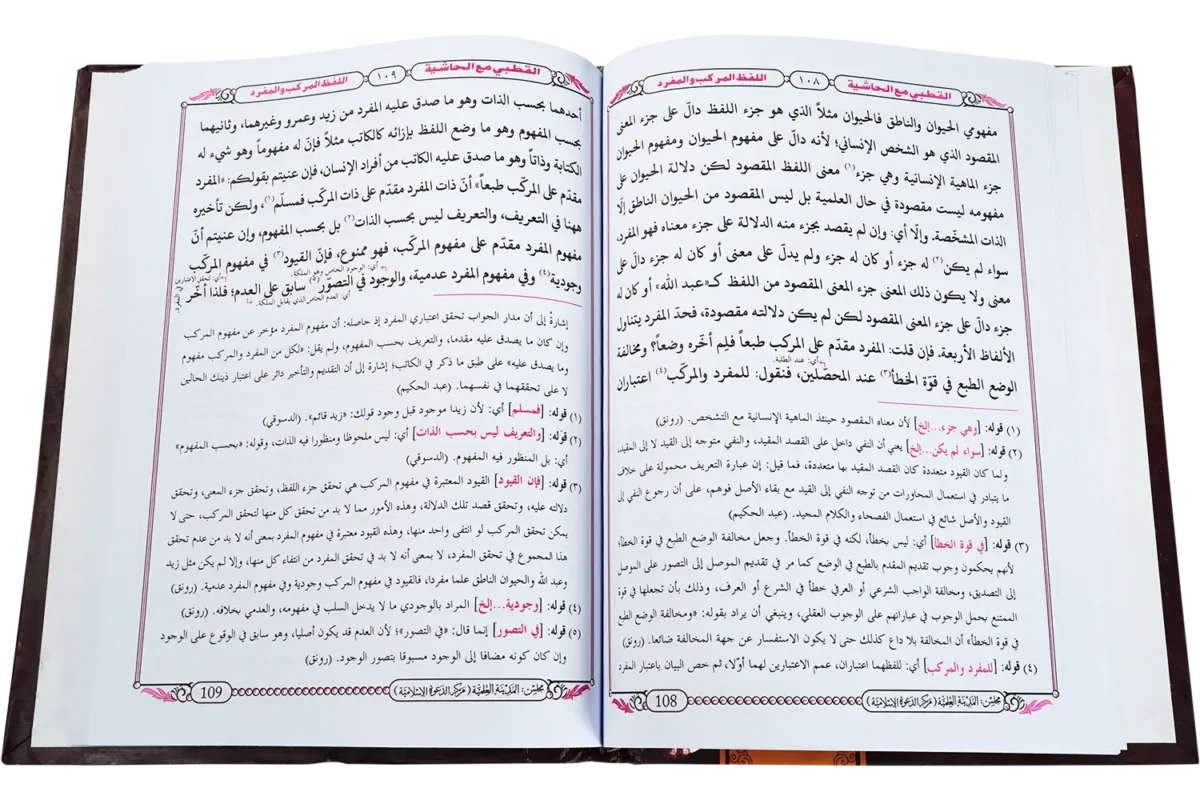 القطبي مع الحاشية ١٠٨ اللفظ المركب والمفرد
مفهومي الحيوان والناطق فالحيوان مثلاً الذي هو جزء اللفظ دالّ على جزء المعنى
المقصود الذي هو الشخص الإنساني؛ لأنه دالّ على مفهوم الحيوان ومفهوم الحيوان
جزء الماهية الإنسانية وهي جزء(١) معنى اللفظ المقصود لكن دلالة الحيوان على
مفهومه ليست مقصودة في حال العلمية بل ليس المقصود من الحيوان الناطق إلّا
الذات المشخّصة. وإلّا أي: وإن لم يقصد بجزء منه الدلالة على جزء معناه فهو المفرد،
سواء لم يكن(٢) له جزء أو كان له جزء ولم يدلّ على معنى أو كان له جزء دالّ على
معنى ولا يكون ذلك المعنى جزء المعنى المقصود من اللفظ كـ«عبد الله» أو كان له
جزء دالّ على جزء المعنى المقصود لكن لم يكن دلالته مقصودة، فحدّ المفرد يتناول
الألفاظ الأربعة. فإن قلت: المفرد مقدّم على المركب طبعاً فلِم أخّره وضعاً؟ ومخالفة
أي: عند الطلبة.
الوضع الطبع في قوّة الخطأ(٣) عند المحصّلين، فنقول: للمفرد والمركّب(٤) اعتباران
(١) قوله: [وهي جزء...إلخ] لأن معناه المقصود حينئذ الماهية الإنسانية مع التشخص. (رونق)
(٢) قوله: [سواء لم يكن...إلخ] يعني أن النفي داخل على القصد المقيد، والنفي متوجه إلى القيد لا إلى المقيد،
ولما كان القيود متعددة كان القصد المقيد بها متعددة، فما قيل: إن عبارة التعريف محمولة على خلاف
ما يتبادر في استعمال المحاورات من توجه النفي إلى القيد مع بقاء الأصل فوهم، على أن رجوع النفي إلى
القيود والأصل شائع في استعمال الفصحاء والكلام المجيد. (عبد الحكيم)
(٣) قوله: [في قوة الخطأ] أي: ليس بخطأ، لكنه في قوة الخطأ. وجعل مخالفة الوضع الطبع في قوة الخطأ؛
لأنهم يحكمون وجوب تقديم المقدم بالطبع في الوضع كما مر في تقديم الموصل إلى التصور على الموصل
إلى التصديق، ومخالفة الواجب الشرعي أو العرفي خطأ في الشرع أو العرف، وذلك بأن تجعلها في قوة
الممتنع بحمل الوجوب في عباراتهم على الوجوب العقلي، وينبغي أن يراد بقوله: «ومخالفة الوضع الطبع
في قوة الخطأ» أن المخالفة بلا داع كذلك حتى لا يكون الاستفسار عن جهة المخالفة ضائعا. (رونق)
(٤) قوله: [للمفرد والمركب] أي: للفظهما اعتباران، عمم الاعتبارين لهما أوّلا، ثم خص البيان باعتبار المفرد
مجلس: المدينة العلمية (مركز الدعوة الإسلامية) 108
القطبي مع الحاشية ١٠٩ اللفظ المركب والمفرد
أحدهما بحسب الذات وهو ما صدق عليه المفرد من زيد وعمرو وغيرهما، وثانيهما
بحسب المفهوم وهو ما وضع اللفظ بإزائه كالكاتب مثلاً فإنّ له مفهوماً وهو شيء له
الكتابة وذاتاً وهو ما صدق عليه الكاتب من أفراد الإنسان، فإن عنيتم بقولكم: «المفرد
مقدّم على المركّب طبعاً» أنّ ذات المفرد مقدّم على ذات المركّب فمسلّم(١)، ولكن تأخيره
ههنا في التعريف، والتعريف ليس بحسب الذات(٢) بل بحسب المفهوم، وإن عنيتم أنّ
مفهوم المفرد مقدّم على مفهوم المركّب، فهو ممنوع، فإنّ القيود(٣) في مفهوم المركّب
أي: الوجود الخاص وهو الملكة.
وجودية(٤) وفي مفهوم المفرد عدمية، والوجود في التصوّر(٥) سابق على العدم؛ فلذا أخّر
أي: العدم الخاص الذي يقابل الملكة.
إشارةٌ إلى أن مدار الجواب تحقق اعتباري المفرد إذ حاصله: أن مفهوم المفرد مؤخر عن مفهوم المركب
وإن كان ما يصدق عليه مقدما، والتعريف بحسب المفهوم، ولم يقل: «لكل من المفرد والمركب مفهوم
وما يصدق عليه» على طبق ما ذكر في الكاتب؛ إشارة إلى أن التقديم والتأخير دائر على اعتبار ذينك الحالين
لا على تحققهما في نفسهما. (عبد الحكيم)
(١) قوله: [فمسلم] أي: لأن زيدا موجود قبل وجود قولك: «زيد قائم». (الدسوقي)
(٢) قوله: [والتعريف ليس بحسب الذات] أي: ليس ملحوظا ومنظورا فيه الذات، وقوله: «بحسب المفهوم»
أي: بل المنظور فيه المفهوم. (الدسوقي)
(٣) قوله: [فإن القيود] القيود المعتبرة في مفهوم المركب هي تحقق جزء اللفظ، وتحقق جزء المعنى، وتحقق
دلالته عليه، وتحقق قصد تلك الدلالة، وهذه الأمور مما لا بد من تحقق كل منها لتحقق المركب، حتى لا
يمكن تحقق المركب لو انتفى واحد منها، وهذه القيود معتبرة في مفهوم المفرد بمعنى أنه لا بد من عدم تحقق
هذا المجموع في تحقق المفرد، لا بمعنى أنه لا بد في تحقق المفرد من: انتفاء كل منها، وإلا لم يكن مثل زيد
وعبد الله والحيوان الناطق علما مفردا، فالقيود في مفهوم المركب وجودية وفي مفهوم المفرد عدمية. (رونق)
(٤) قوله: [وجودية...إلخ] المراد بالوجودي ما لا يدخل السلب في مفهومه، والعدمي بخلافه. (رونق)
(٥) قوله: [في التصور] إنما قال: «في التصور»؛ لأن العدم قد يكون أصليا، وهو سابق في الوقوع على الوجود
وإن كان كونه مضافا إلى الوجود مسبوقا بتصور الوجود. (رونق)
مجلس: المدينة العلمية (مركز الدعوة الإسلامية) 109